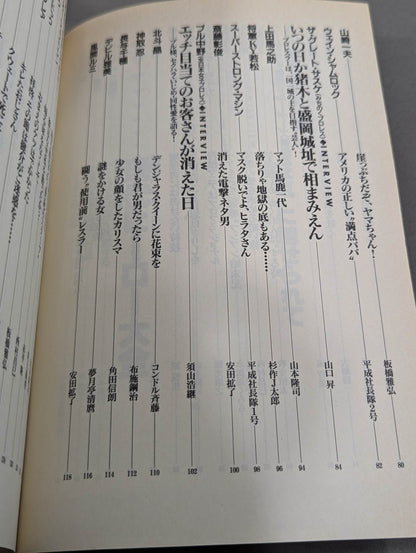 山崎一夫 崖っぷちだぞ、ヤマちゃん! 板橋雅弘 80
ウェイン・シャムロック アメリカの正しい“満点パパ” 平成社長隊2号 82
ザ・グレート・サスケ(みちのくプロレス)●INTERVIEW
いつの日か猪木と盛岡城址で相まみえん 山口 昇 84
プロレスラー1国一城の主を目指す芸人!
上田馬之助 マット馬鹿一代 山本隆司 94
将軍KY若松 落ちりゃ地獄の底もある…… 杉作J太郎 96
スーパー・ストロング・マシン マスク脱いでよ、ヒラタさん 平成社長隊1号 98
斎藤彰俊 消えた電撃ネタ男 安田拡了 100
ブル中野(全日本女子プロレス)●INTERVIEW
エッチ目当てのお客さんが消えた日 須山浩継 102
ブル様、セクハラ・いじめ・同性愛を語る!
北斗晶 デンジャラス・クイーンに花束を コンドル斉藤 110
神取忍 もしも君が男だったら 布施鋼治 112
長与千種 少女の顔をしたカリスマ 角田信朗 114
デビル雅美 謎をかける女 夢月亭清麿 116
風間ルミ 闘う“使用前”レスラー 安田拡了 118
板橋雅弘